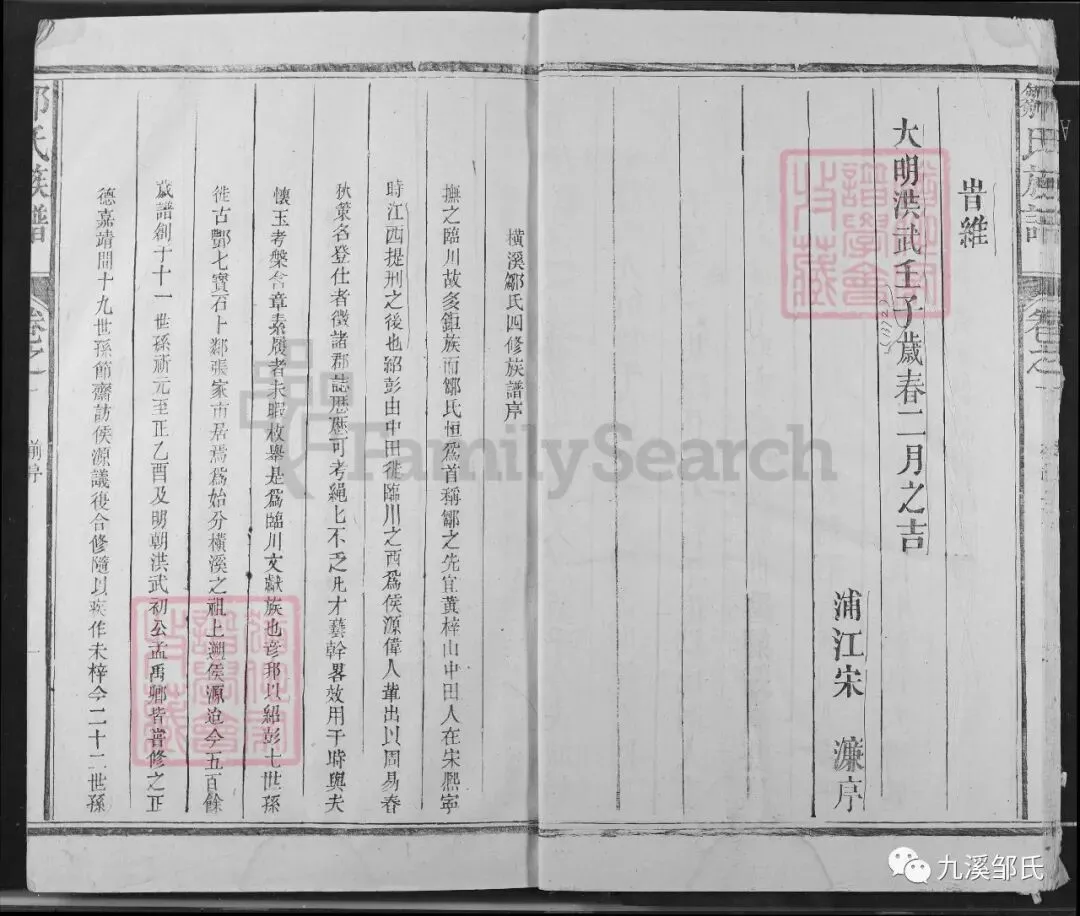 鄒氏族譜
卷之一
旹維
大明洪武壬子歲春二月之吉
(1372)
浦江宋　濂序
橫溪鄒氏四修族譜序
撫之臨川故多鉅族而鄒氏恒爲首稱鄒之先宜黃梓山中田人在宋熙寧
時江西提刑之後也紹彭由中田徙臨川之西爲侯源偉人軰出以周易春
秋策名登仕者徵諸郡誌歷歷可考繩匕不乏凡才藝幹畧效用于時與夫
懷玉考槃含章素履者未暇枚舉是爲臨川文獻族也彦邦以紹彭七世孫
徙古酆七寳石卜鄰張家市居焉爲始分橫溪之祖上遡侯源迨今五百餘
歲譜創于十一世孫祈元至正乙酉及明朝洪武初公孟禹卿皆嘗修之正
德嘉靖間十九世孫節齋訪侯源議復合修隨以疾作未梓今二十二世孫
鄒氏族譜
卷之一
前序
譜學會
收藏
譜學會
收藏
FamilySearch
九溪邹氏